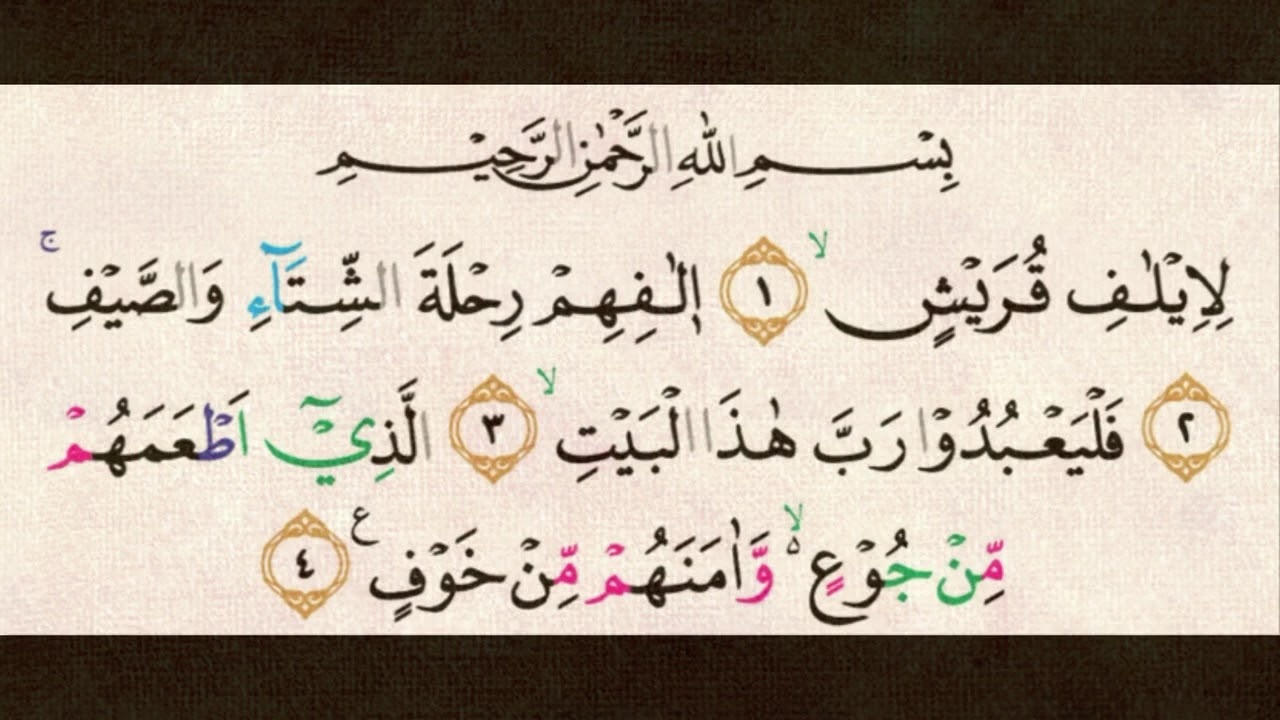 بِسْمِ اللّٰهِ الرَّحْمٰنِ الرَّحِيْمِ
لِاِيْلٰفِ قُرَيْشٍۙ ١ اٖلٰفِهِمْ رِحْلَةَ الشِّتَاۤءِ وَالصَّيْفِۚ
٢ فَلْيَعْبُدُوْا رَبَّ هٰذَا الْبَيْتِۙ ٣ الَّذِيْٓ اَطْعَمَهُمْ
مِّنْ جُوْعٍ ەۙ وَّاٰمَنَهُمْ مِّنْ خَوْفٍ ࣖ ٤